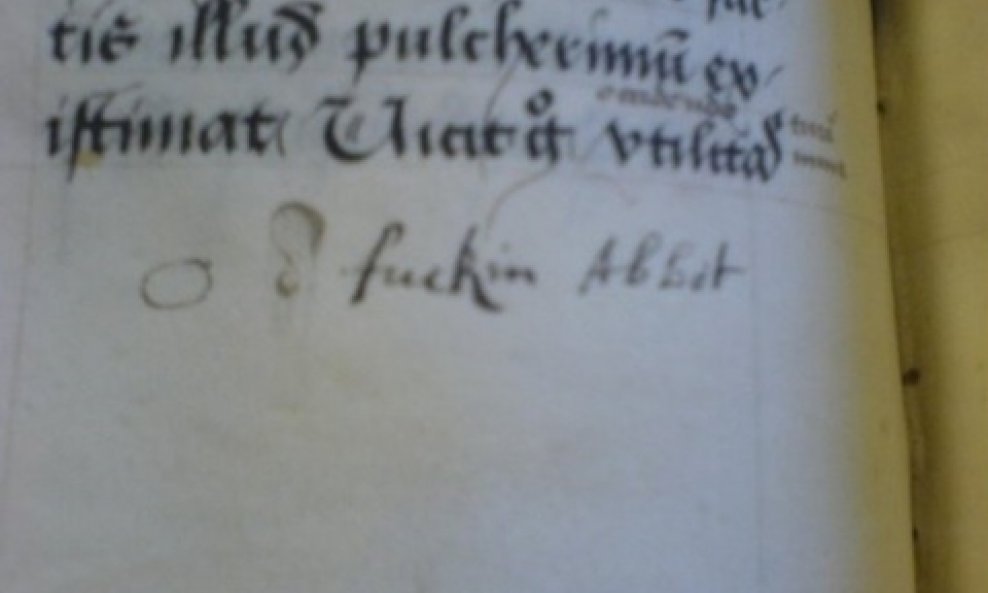 tiſ illud pulcherimū ex/
iſtimat( Uitat qͦ utilitad
O d fuckin Abbot